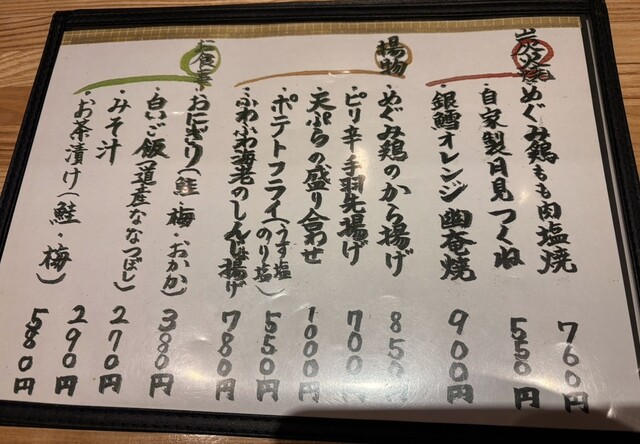 炭火焼
めぐみ鶏もも肉塩焼 760円
・自家製月見つくね 550円
銀鱈オレンジ幽庵焼 900円
揚物
・めぐみ鶏のから揚げ 850円
・ピリ辛手羽先揚げ 700円
・天ぷらの盛り合わせ 1000円
・ポテトフライ(うす塩・のり塩) 550円
・ふわふわ海老のしんじょ揚げ 780円
お食事
・おにぎり(鮭・梅・おかか) 380円
・白いご飯(道産ななつぼし) 270円
・みそ汁 290円
・お茶漬け(鮭・梅) 580円